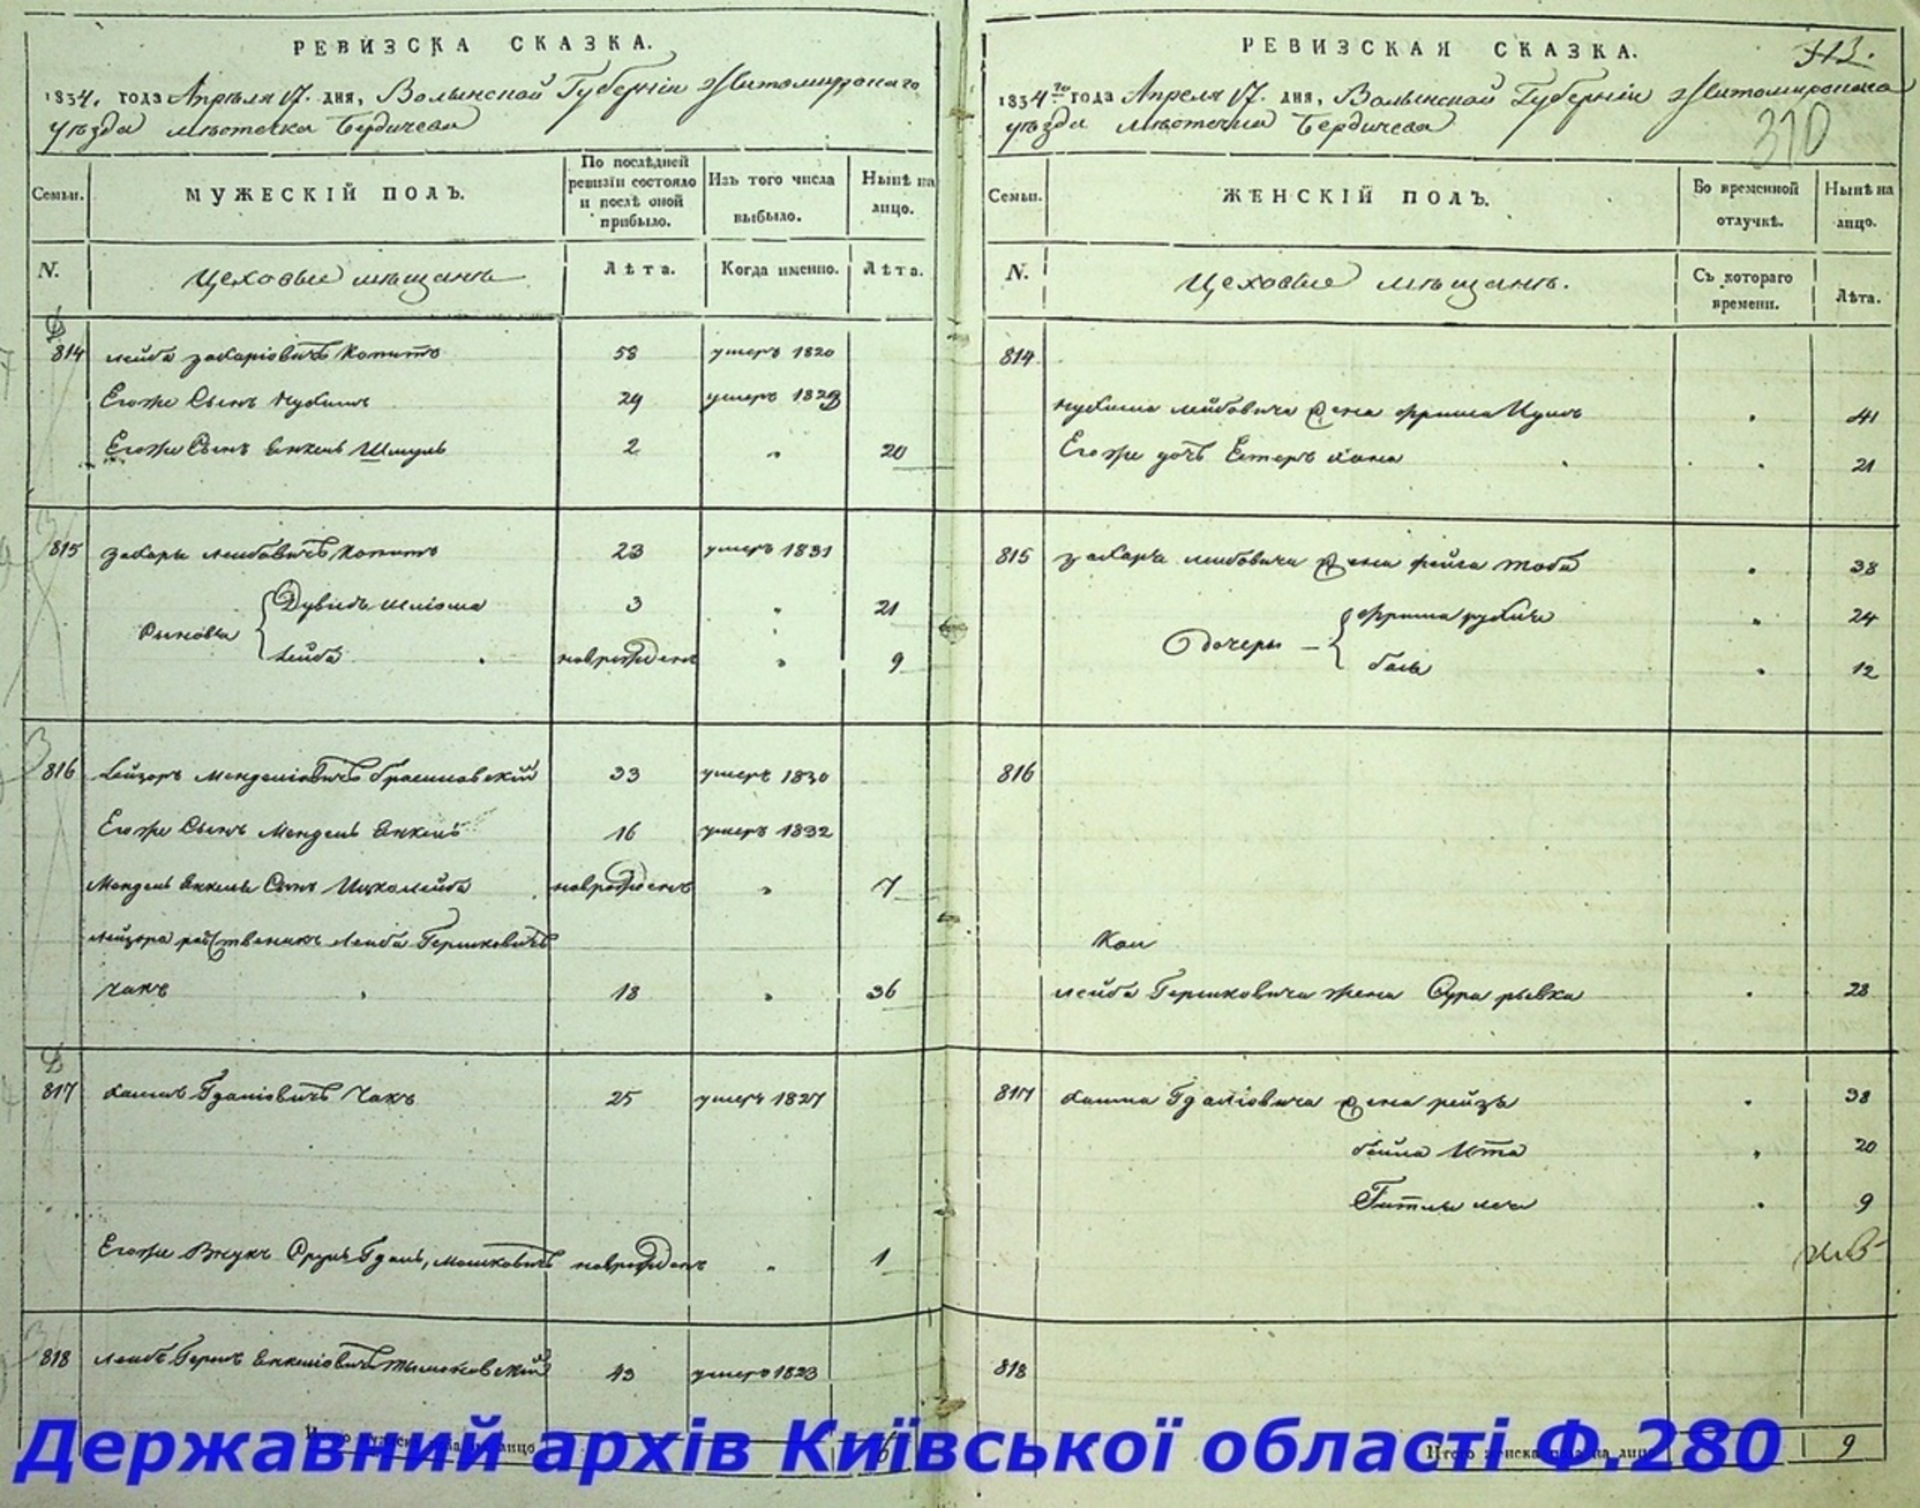 РЕВИЗСКА СКАЗКА.
1834. года Апреля 17. дня, Волынской Губернiи Житомирскаго
уѣзда мѣстечка Бердичева
Семьи.
МУЖЕСКIЙ ПОЛЪ.
По послѣдней ревизiи состояло и послѣ оной прибыло.
Изъ того числа выбыло.
Нынѣ на лицо.
N.
Цеховые мѣщанѣ
Лѣта.
Когда именно.
Лѣта.
814 Лейба Захарiовичъ Копитъ 58 умеръ 1820
Егоже Сынъ Нухимъ 29 умеръ 1828
Егоже Сынъ Янкель Шмуль 2 " 20
815 Захарь Лейбовичъ Копитъ 23 умеръ 1831
Сыновья { Дувидъ Шлiома 3 " 21
Лейба новорожденъ " 9
816 Лейзоръ Менделiовичъ 33 умеръ 1830
Егоже Сынъ Мендель Янкель 16 умеръ 1832
Мендель Янкеля Сынъ Ицколейба новорожденъ " 7
Лейзора родственикъ Лейба Гершковичъ
Чакъ 18 " 36
817 Хаимъ Гдалiовичъ Чакъ 25 умеръ 1827
Егоже Внукъ Сруль Гдаль, Мошковичъ новорожденъ " 1
818 Лейбъ Гершъ Янкелiовичъ 43 умеръ 1823
Итого мужеска пола на лицо 6
РЕВИЗСКАЯ СКАЗКА.
313.
1834го года Апреля 17. дня, Волынской Губернiи Житомирскаго
310
уѣзда мѣстечка Бердичева
Семьи.
ЖЕНСКIЙ ПОЛЪ.
Во временной отлучкѣ.
Нынѣ на лицо.
N.
Цеховые мѣщанѣ.
Съ котораго времени.
Лѣта.
814
Нухима Лейбовича жена Фрима 41
Егоже дочь Естеръ Хана " 21
815 Захара Лейбовича жена Фейга Тоба " 38
Дочеры — { Фрима Рухля " 24
Бася " 12
816
Лейба Гершковича жена Сура Рывка " 28
817 Хаима Гдалiовича жена Рейзъ " 38
Бейла Ита " 20
Гитля Лея " 9
818
Итого женска пола на лицо 9
Державний архів Київської області Ф.280